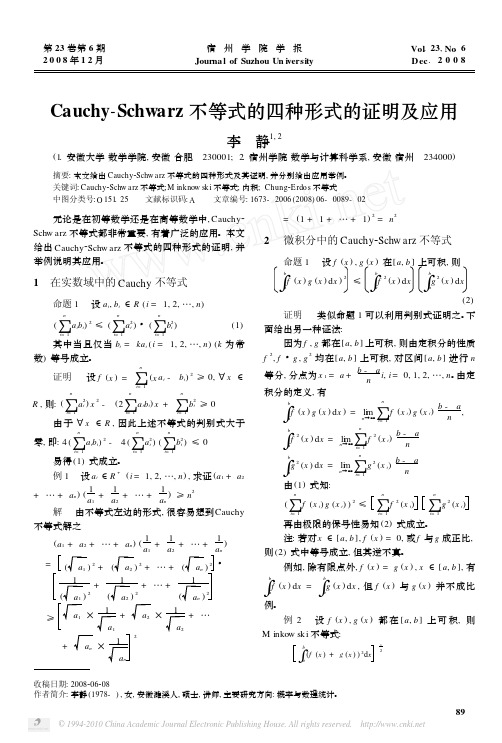 第 23 卷第 6 期
2 0 0 8 年 1 2 月
宿 州 学 院 学 报
Journal of Suzhou University
Vol. 23, No 6
Dec. 2 0 0 8
Cauchy-Schwarz 不等式的四种形式的证明及应用
李 静1, 2
(1. 安徽大学 数学学院, 安徽 合肥 230001; 2. 宿州学院 数学与计算科学系, 安徽 宿州 234000)
摘要: 本文给出 Cauchy-Schwarz 不等式的四种形式及其证明, 并分别给出应用举例。
关键词: Cauchy-Schwarz 不等式; Minknowski 不等式; 内积; Chung-Erdos 不等式
中图分类号: O151. 25 文献标识码: A 文章编号: 1673- 2006 (2008) 06- 0089- 02
无论是在初等数学还是在高等数学中, Cauchy-
Schwarz 不等式都非常重要, 有着广泛的应用。本文
给出 Cauchy-Schwarz 不等式的四种形式的证明, 并
举例说明其应用。
1 在实数域中的 Cauchy 不等式
命题 1 设 ai, bi ∈ R (i = 1, 2, …, n)
(∑aibi)² ≤ (∑ai²) • (∑bi²) (1)
其中当且仅当 bi = kai (i = 1, 2, …, n) (k 为常
数) 等号成立。
证明 设 f (x) = ∑(xai - bi)² ≥ 0, ∀x ∈
R, 则: (∑ai²) x² - (2∑aibi) x + ∑bi² ≥ 0
由于 ∀x ∈ R, 因此上述不等式的判别式大于
零, 即: 4(∑aibi)² - 4(∑ai²) (∑bi²) ≤ 0
易得(1) 式成立。
例 1 设 ai ∈ R⁺ (i = 1, 2, …, n), 求证(a1 + a2
+ … + an) (1/a1 + 1/a2 + … + 1/an) ≥ n²
解 由不等式左边的形式, 很容易想到Cauchy
不等式解之
(a1 + a2 + … + an) (1/a1 + 1/a2 + … + 1/an)
= [(√a1)² + (√a2)² + … + (√an)²] •
[1/(√a1)² + 1/(√a2)² + … + 1/(√an)²]
≥ [√a1 × 1/√a1 + √a2 × 1/√a2 + …
+ √an × 1/√an]²
= (1 + 1 + … + 1)² = n²
2 微积分中的 Cauchy-Schwarz 不等式
命题 1 设 f (x), g (x) 在[a, b] 上可积, 则
(∫f (x) g (x) dx)² ≤ (∫f² (x) dx) (∫g² (x) dx)
(2)
证明 类似命题 1 可以用判别式证明之。下
面给出另一种证法:
因为 f, g 都在[a, b] 上可积, 则由定积分的性质
f², f • g, g² 均在[a, b] 上可积, 对区间[a, b] 进行 n
等分, 分点为 xi = a + (b - a)/n i, i = 0, 1, 2, …, n。由定
积分的定义, 有
∫f (x) g (x) dx = lim∑f (xi) g (xi) (b - a)/n,
∫f² (x) dx = lim∑f² (xi) (b - a)/n
∫g² (x) dx = lim∑g² (xi) (b - a)/n
由(1) 式知:
(∑f (xi) g (xi))² ≤ [∑f² (xi)] [∑g² (xi)]
再由极限的保号性易知(2) 式成立。
注: 若对 x ∈ [a, b], f (x) = 0, 或 f 与 g 成正比,
则(2) 式中等号成立, 但其逆不真。
例如, 除有限点外, f (x) = g (x), x ∈ [a, b], 有
∫f (x) dx = ∫g (x) dx, 但 f (x) 与 g (x) 并不成比
例。
例 2 设 f (x), g (x) 都在 [a, b] 上可积, 则
Minkowski 不等式:
[∫(f (x) + g (x))² dx]^(1/2)
收稿日期: 2008-06-08
作者简介: 李静(1978- ), 女, 安徽濉溪人, 硕士, 讲师, 主要研究方向: 概率与数理统计。
89
© 1994-2010 China Academic Journal Electronic Publishing House. All rights reserved. http://www.cnki.net